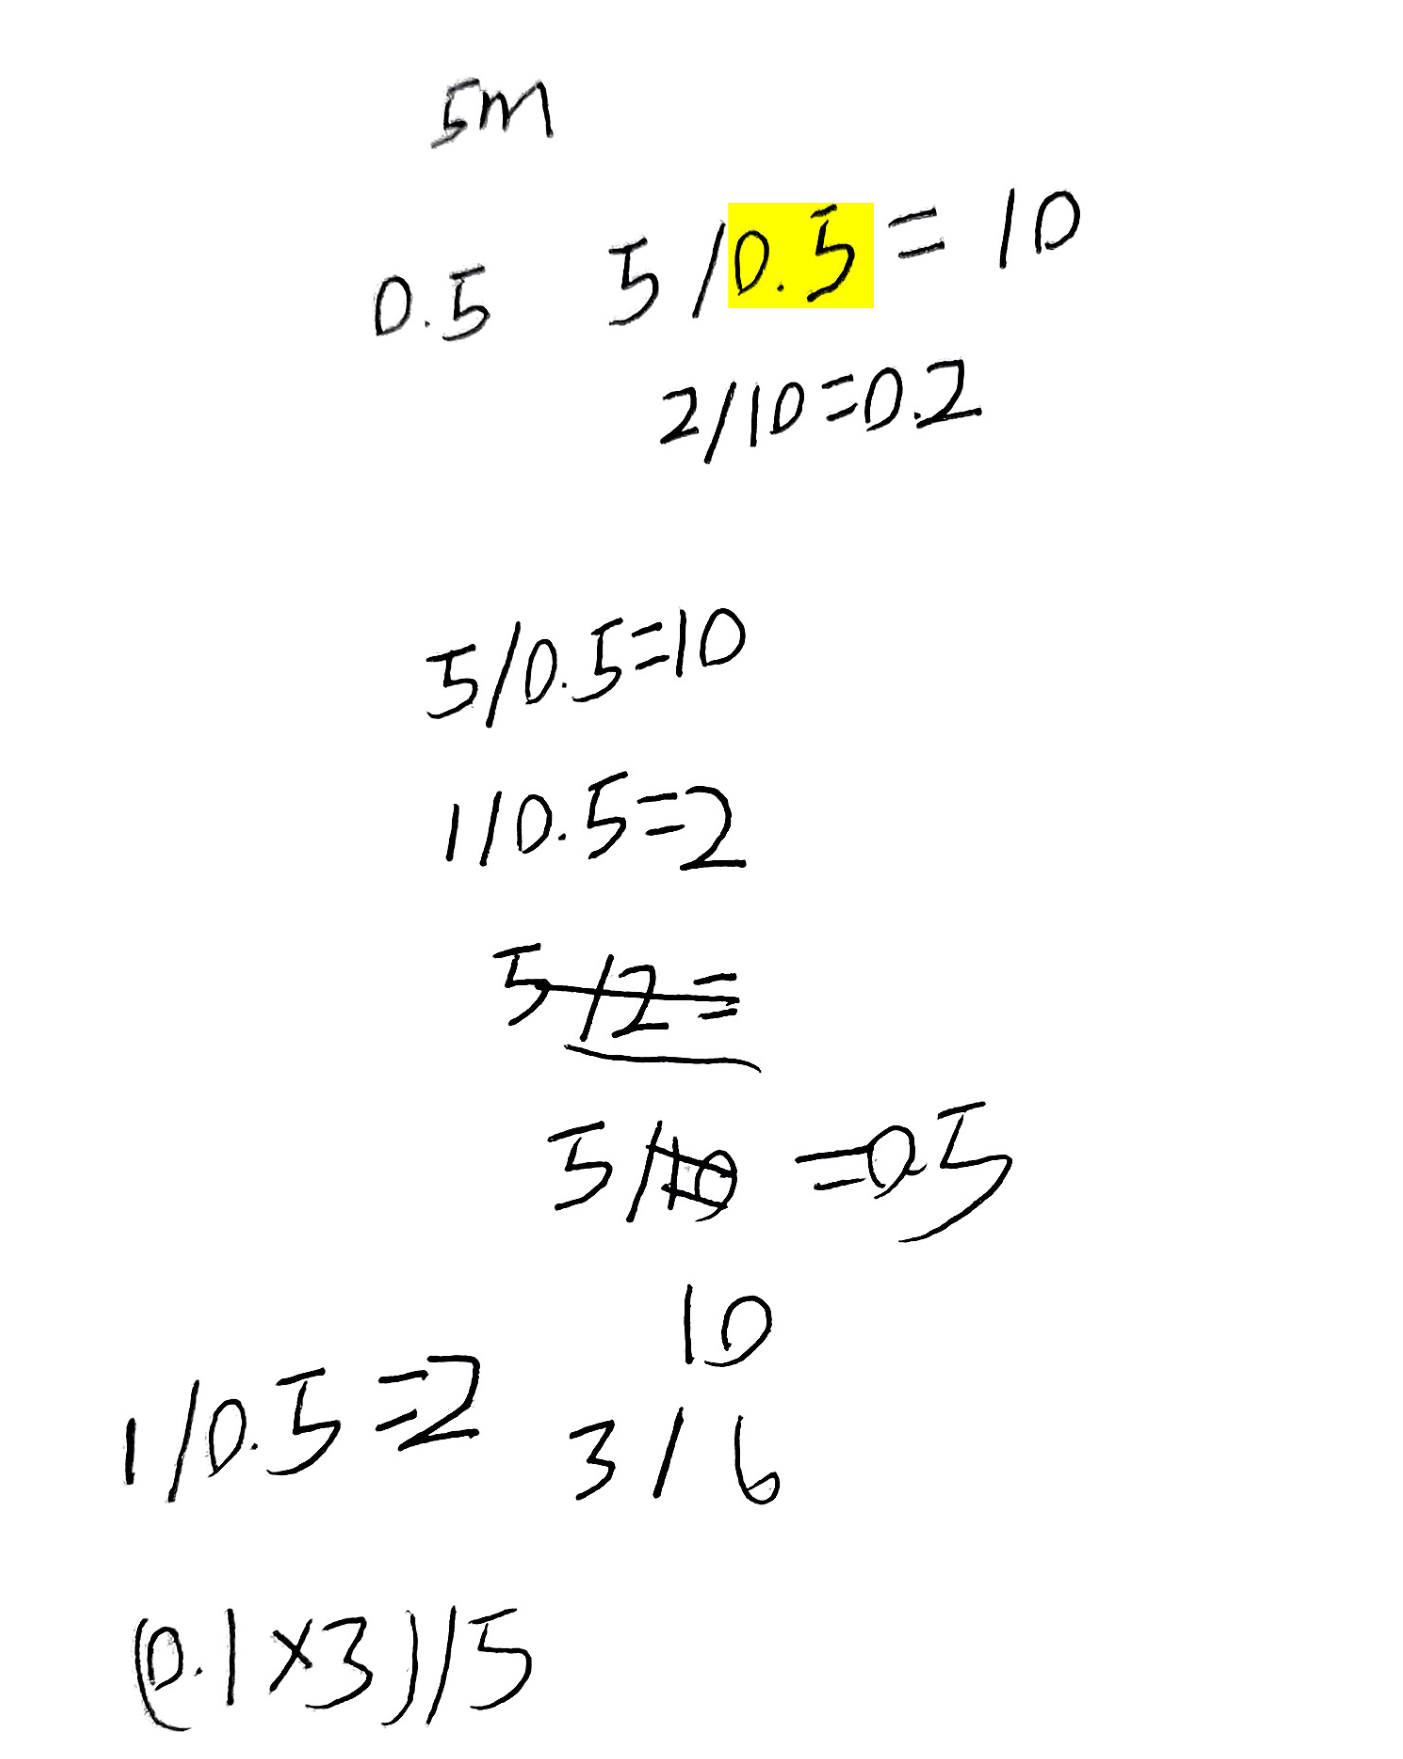 5m
0.5 5/0.5=10
2/10=0.2
5/0.5=10
1/0.5=2
5/2=
5/10 =0.5
10
1/0.5=2 3/6
(0.1×3)/5